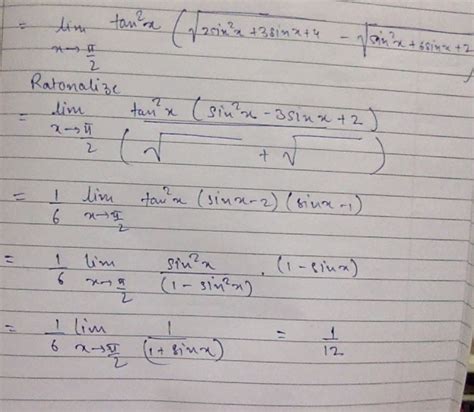 = lim x→π/2 tan²x (√2sin²x+3sinx+4 - √sin²x+6sinx+2)
Ratonalize
= lim x→π/2 tan²x (sin²x - 3sinx + 2) / (√ + √ )
= 1/6 lim x→π/2 tan²x (sinx-2) (sinx-1)
= 1/6 lim x→π/2 sin²x / (1-sin²x) . (1-sinx)
= 1/6 lim x→π/2 1 / (1+sinx) = 1/12